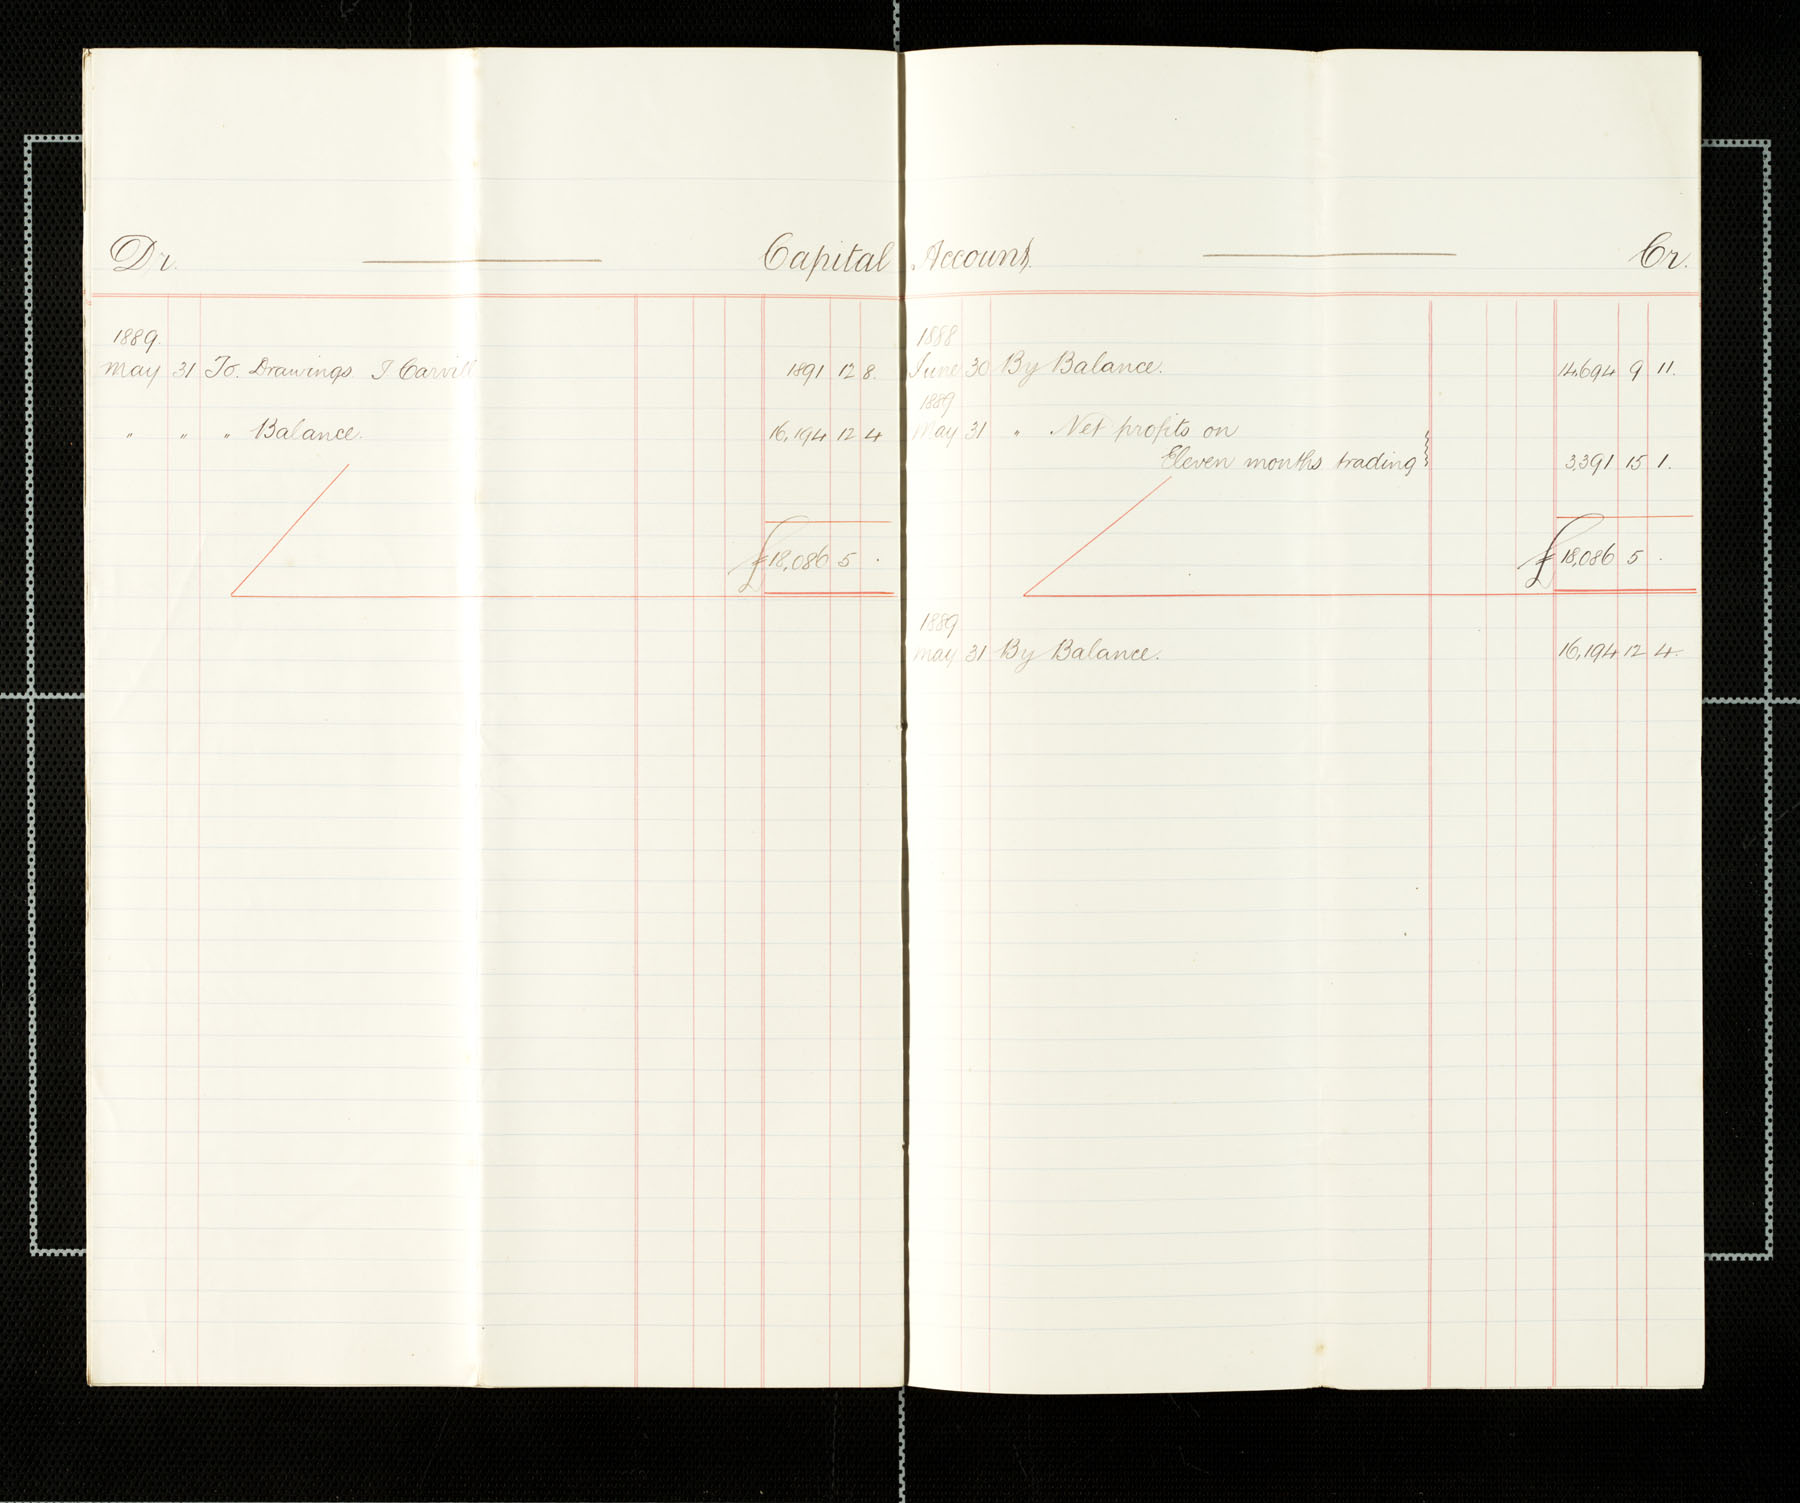 Dr. Capital Account. Cr.
1889.
May 31 To. Drawings J Carvill 1891 12 8.
" " " Balance. 16,194 12 4
£18,086 5 .
1888
June 30 By Balance. 14,694 9 11.
1889
May 31 " Net profits on
Eleven months trading 3,391 15 1.
£18,086 5 .
1889
May 31 By Balance. 16,194 12 4.